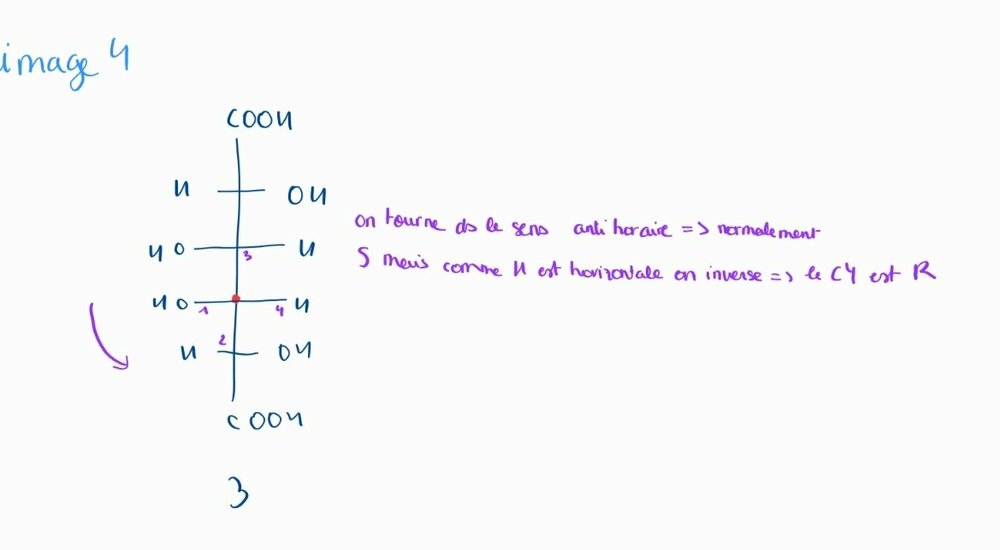 image 4
COOH
H OH
on tourne ds le sens anti horaire => normalement
HO 3 H
S mais comme H est horizontale on inverse => le C4 est R
HO 1 4 H
2
H OH
COOH
3